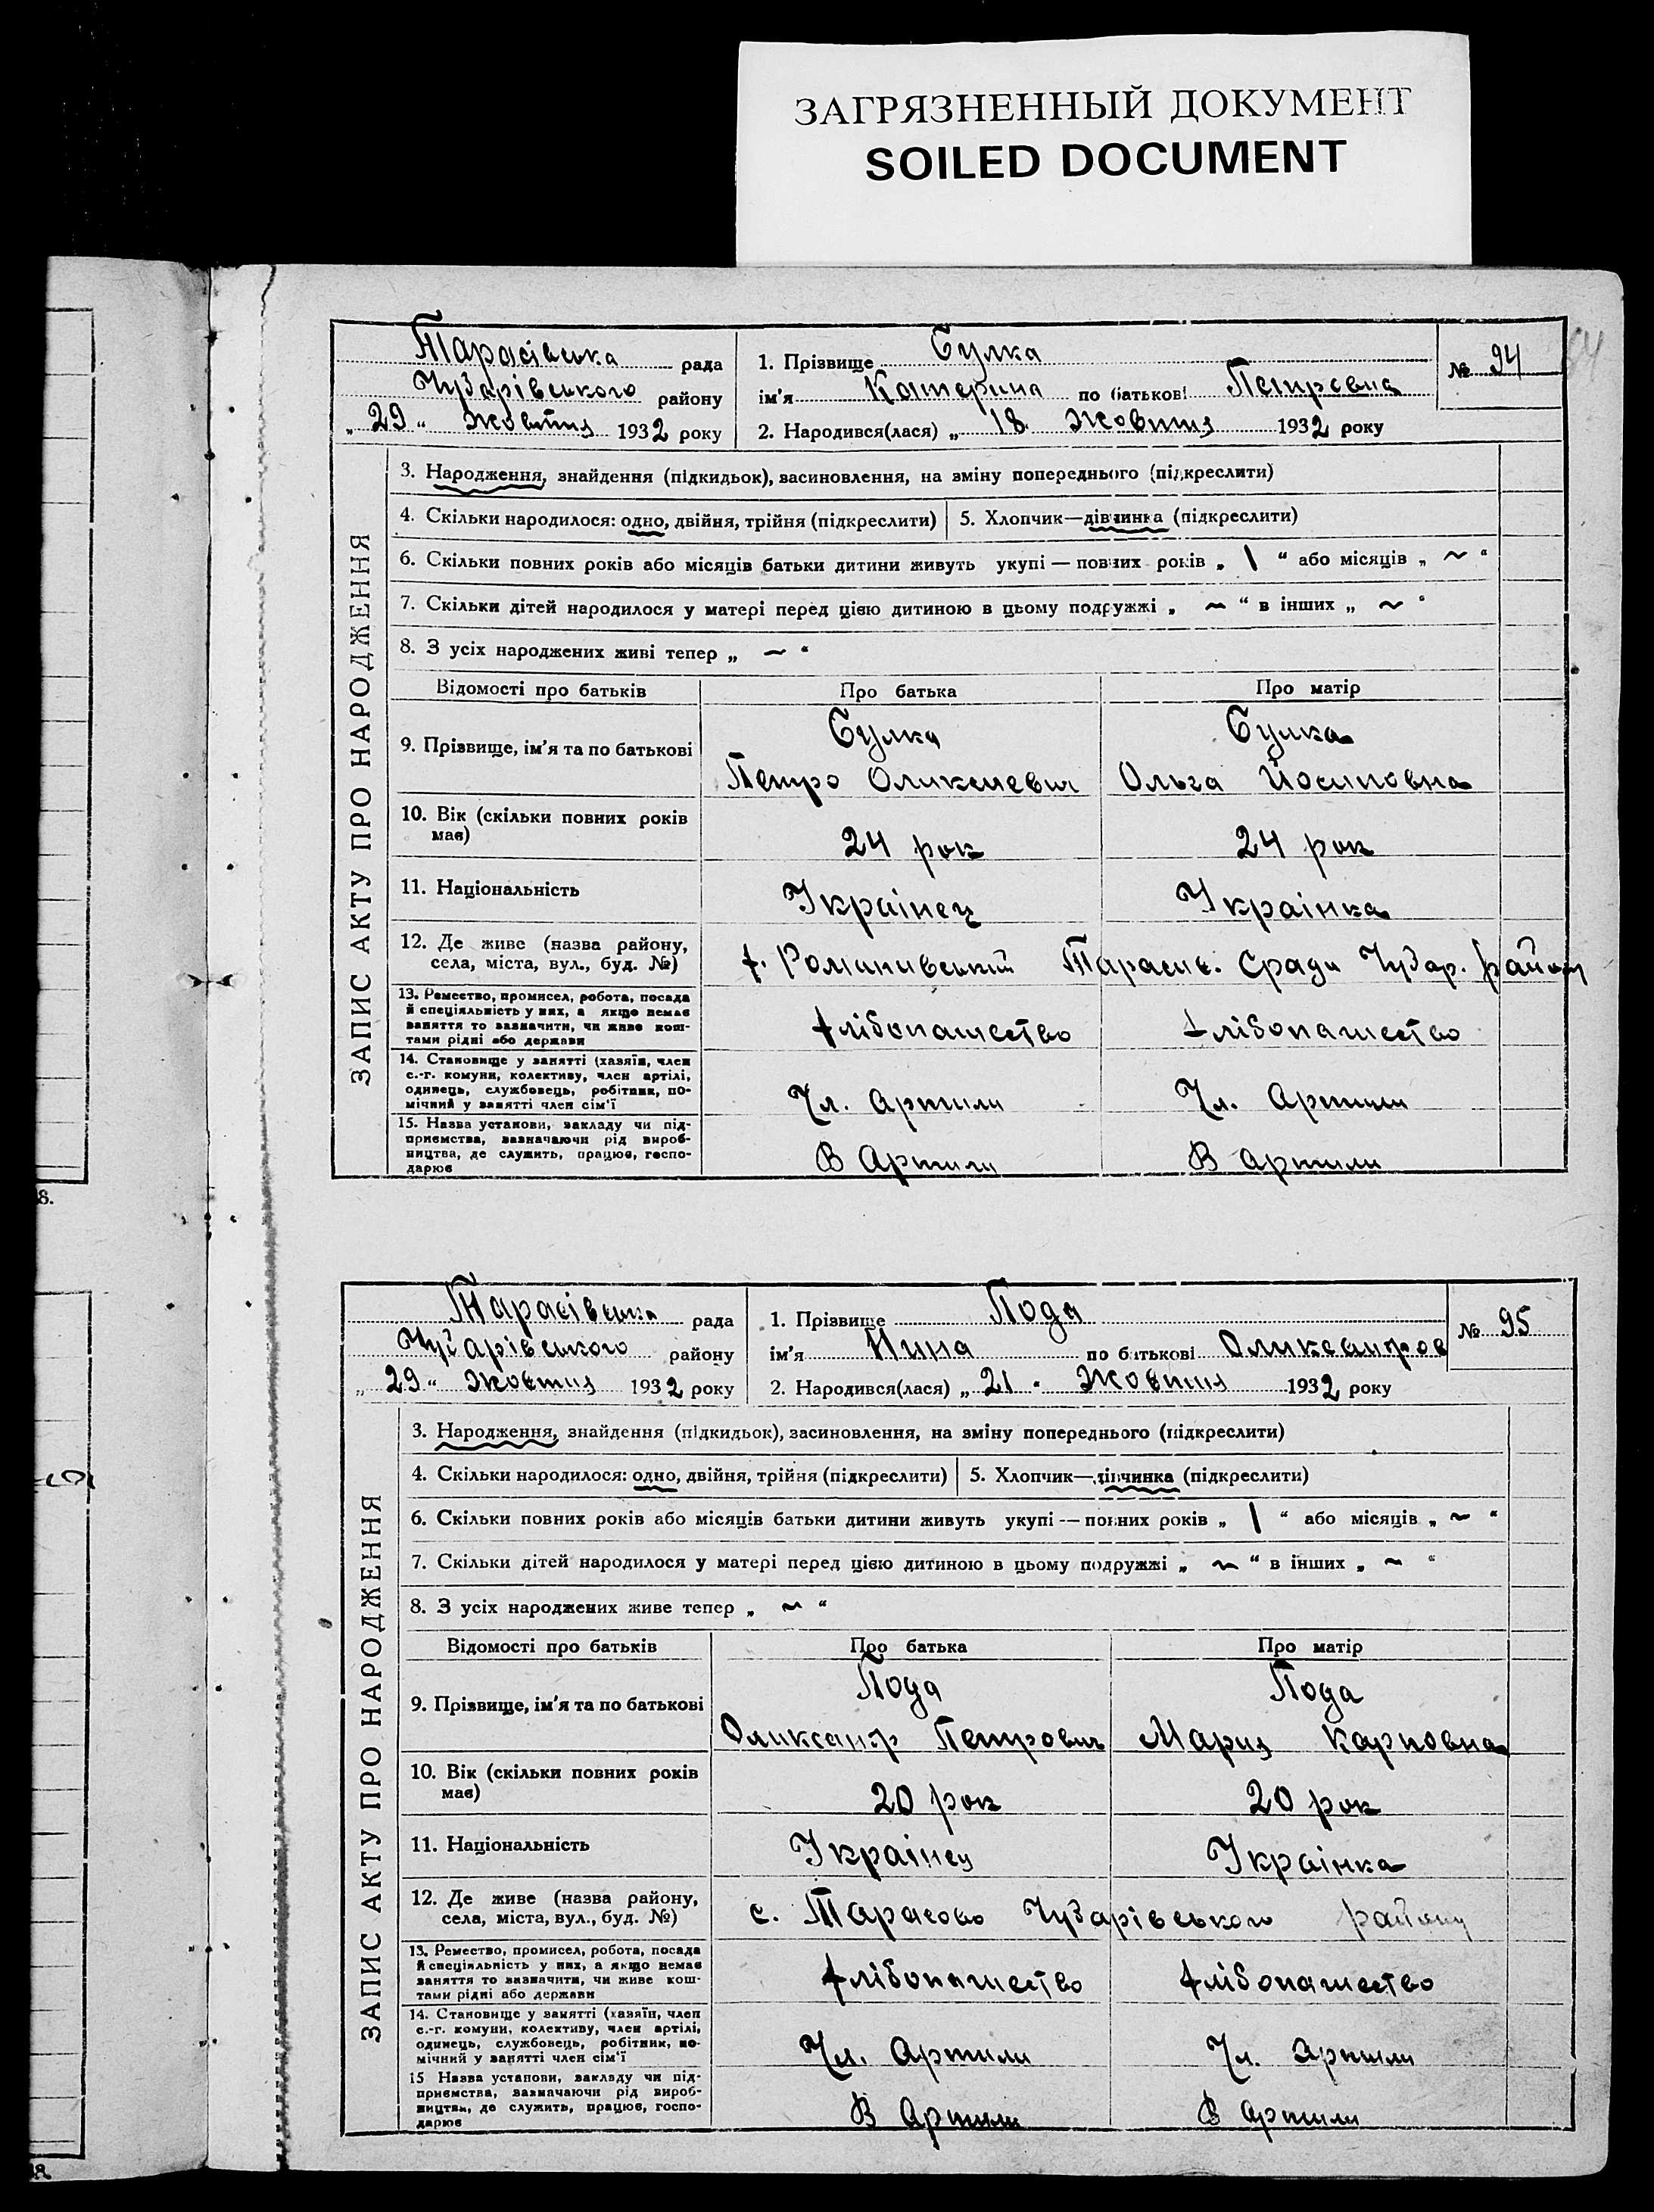 ЗАГРЯЗНЕННЫЙ ДОКУМЕНТ
SOILED DOCUMENT
Тарасівська рада
Чубарівського району
„ 29 “ Жовтня 1932 року
1. Прізвище Булка
ім'я Катерина по батькові Петровна
2. Народився(лася) „ 18 Жовтня 1932 року
№ 94
ЗАПИС АКТУ ПРО НАРОДЖЕННЯ
3. Народження, знайдення (підкидьок), васиновлення, на зміну попереднього (підкреслити)
4. Скільки народилося: одно, двійня, трійня (підкреслити) 5. Хлопчик—дівчинка (підкреслити)
6. Скільки повних років або місяців батьки дитини живуть укупі — повних років „ 1 “ або місяців „ ~ “
7. Скільки дітей народилося у матері перед цією дитиною в цьому подружжі „ ~ “ в інших „ ~ “
8. З усіх народжених живі тепер „ ~ “
Відомості про батьків Про батька Про матір
9. Прізвище, ім'я та по батькові
Булка Булка
Петро Оликсиевич Ольга Йосиповна
10. Вік (скільки повних років
має)
24 рок 24 рок
11. Національність Українец Українка
12. Де живе (назва району,
села, міста, вул., буд. №)
х. Романивський Тарасив. Сради Чубар. району
13. Ремество, промисел, робота, посада
й спеціяльність у них, а якщо немає
заняття то зазначити, чи живе кош-
тами рідні або держави
хлібопашество хлібопашество
14. Становище у занятті (хазяїн, член
с.-г. комуни, колективу, член артілі,
одинець, службовець, робітник, по-
мічний у занятті член сім'ї
Чл. Артили Чл. Артили
15. Назва установи, закладу чи під-
приємства, зазначаючи рід вироб-
ництва, де служить, працює, госпо-
дарює
В Артили В Артили
Тарасівська рада
Чубарівського району
„ 29 “ Жовтня 1932 року
1. Прізвище Пода
ім'я Нина по батькові Оликсандров
2. Народився(лася) „ 21 “ Жовтня 1932 року
№ 95
ЗАПИС АКТУ ПРО НАРОДЖЕННЯ
3. Народження, знайдення (підкидьок), засиновлення, на зміну попереднього (підкреслити)
4. Скільки народилося: одно, двійня, трійня (підкреслити) 5. Хлопчик—дівчинка (підкреслити)
6. Скільки повних років або місяців батьки дитини живуть укупі — повних років „ 1 “ або місяців „ ~ “
7. Скільки дітей народилося у матері перед цією дитиною в цьому подружжі „ ~ “ в інших „ ~ “
8. З усіх народжених живе тепер „ ~ “
Відомості про батьків Про батька Про матір
9. Прізвище, ім'я та по батькові
Пода Пода
Оликсандр Петрович Мария Карповна
10. Вік (скільки повних років
має)
20 рок 20 рок
11. Національність Українец Українка
12. Де живе (назва району,
села, міста, вул., буд. №)
с. Тарасово Чубарівського району
13. Ремество, промисел, робота, посада
й спеціяльність у них, а якщо немає
заняття то зазначити, чи живе кош-
тами рідні або держави
хлібопашество хлібопашество
14. Становище у занятті (хазяїн, член
с.-г. комуни, колективу, член артілі,
одинець, службовець, робітник, по-
мічний у занятті член сім'ї
Чл. Артили Чл. Артили
15 Назва установи, закладу чи під-
приємства, зазначаючи рід вироб-
ництва, де служить, працює, госпо-
дарює
В Артили В Артили